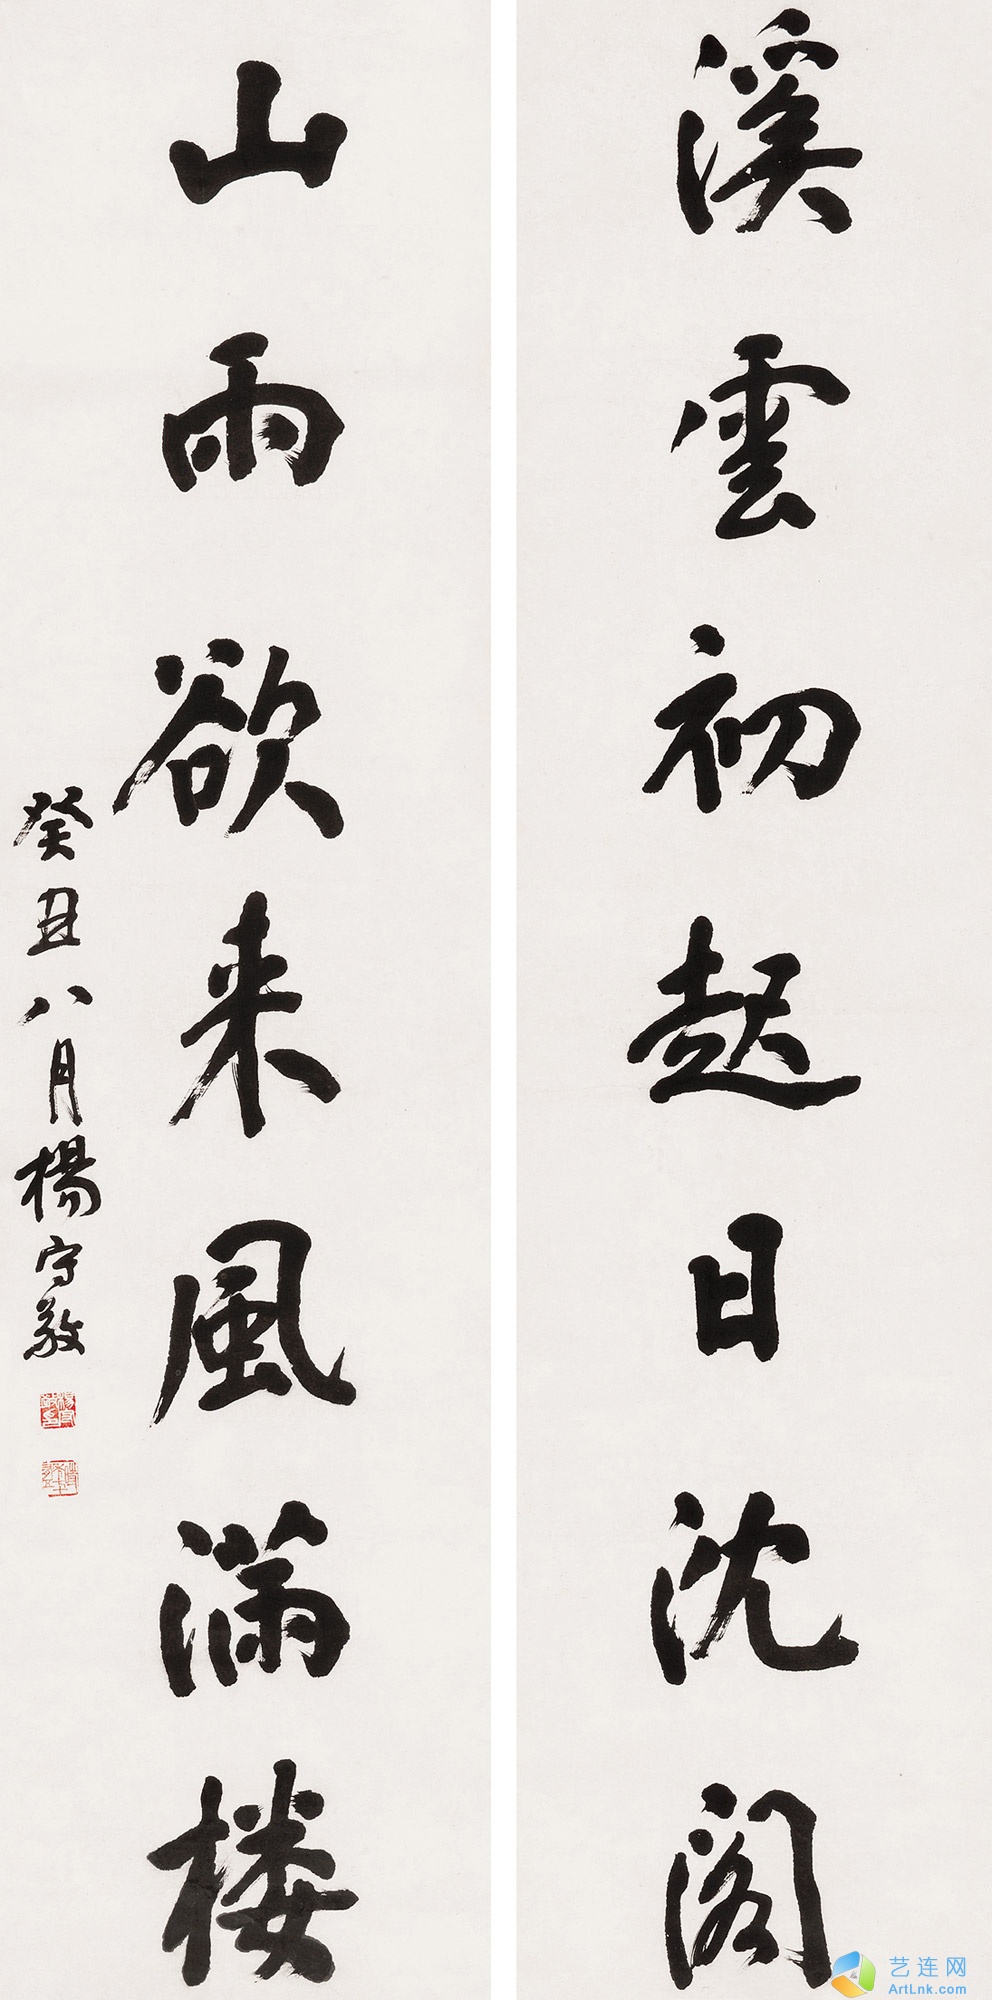 溪雲初起日沈阁
山雨欲来風满楼
癸丑八月楊守敬
艺连网
ArtLnk.com